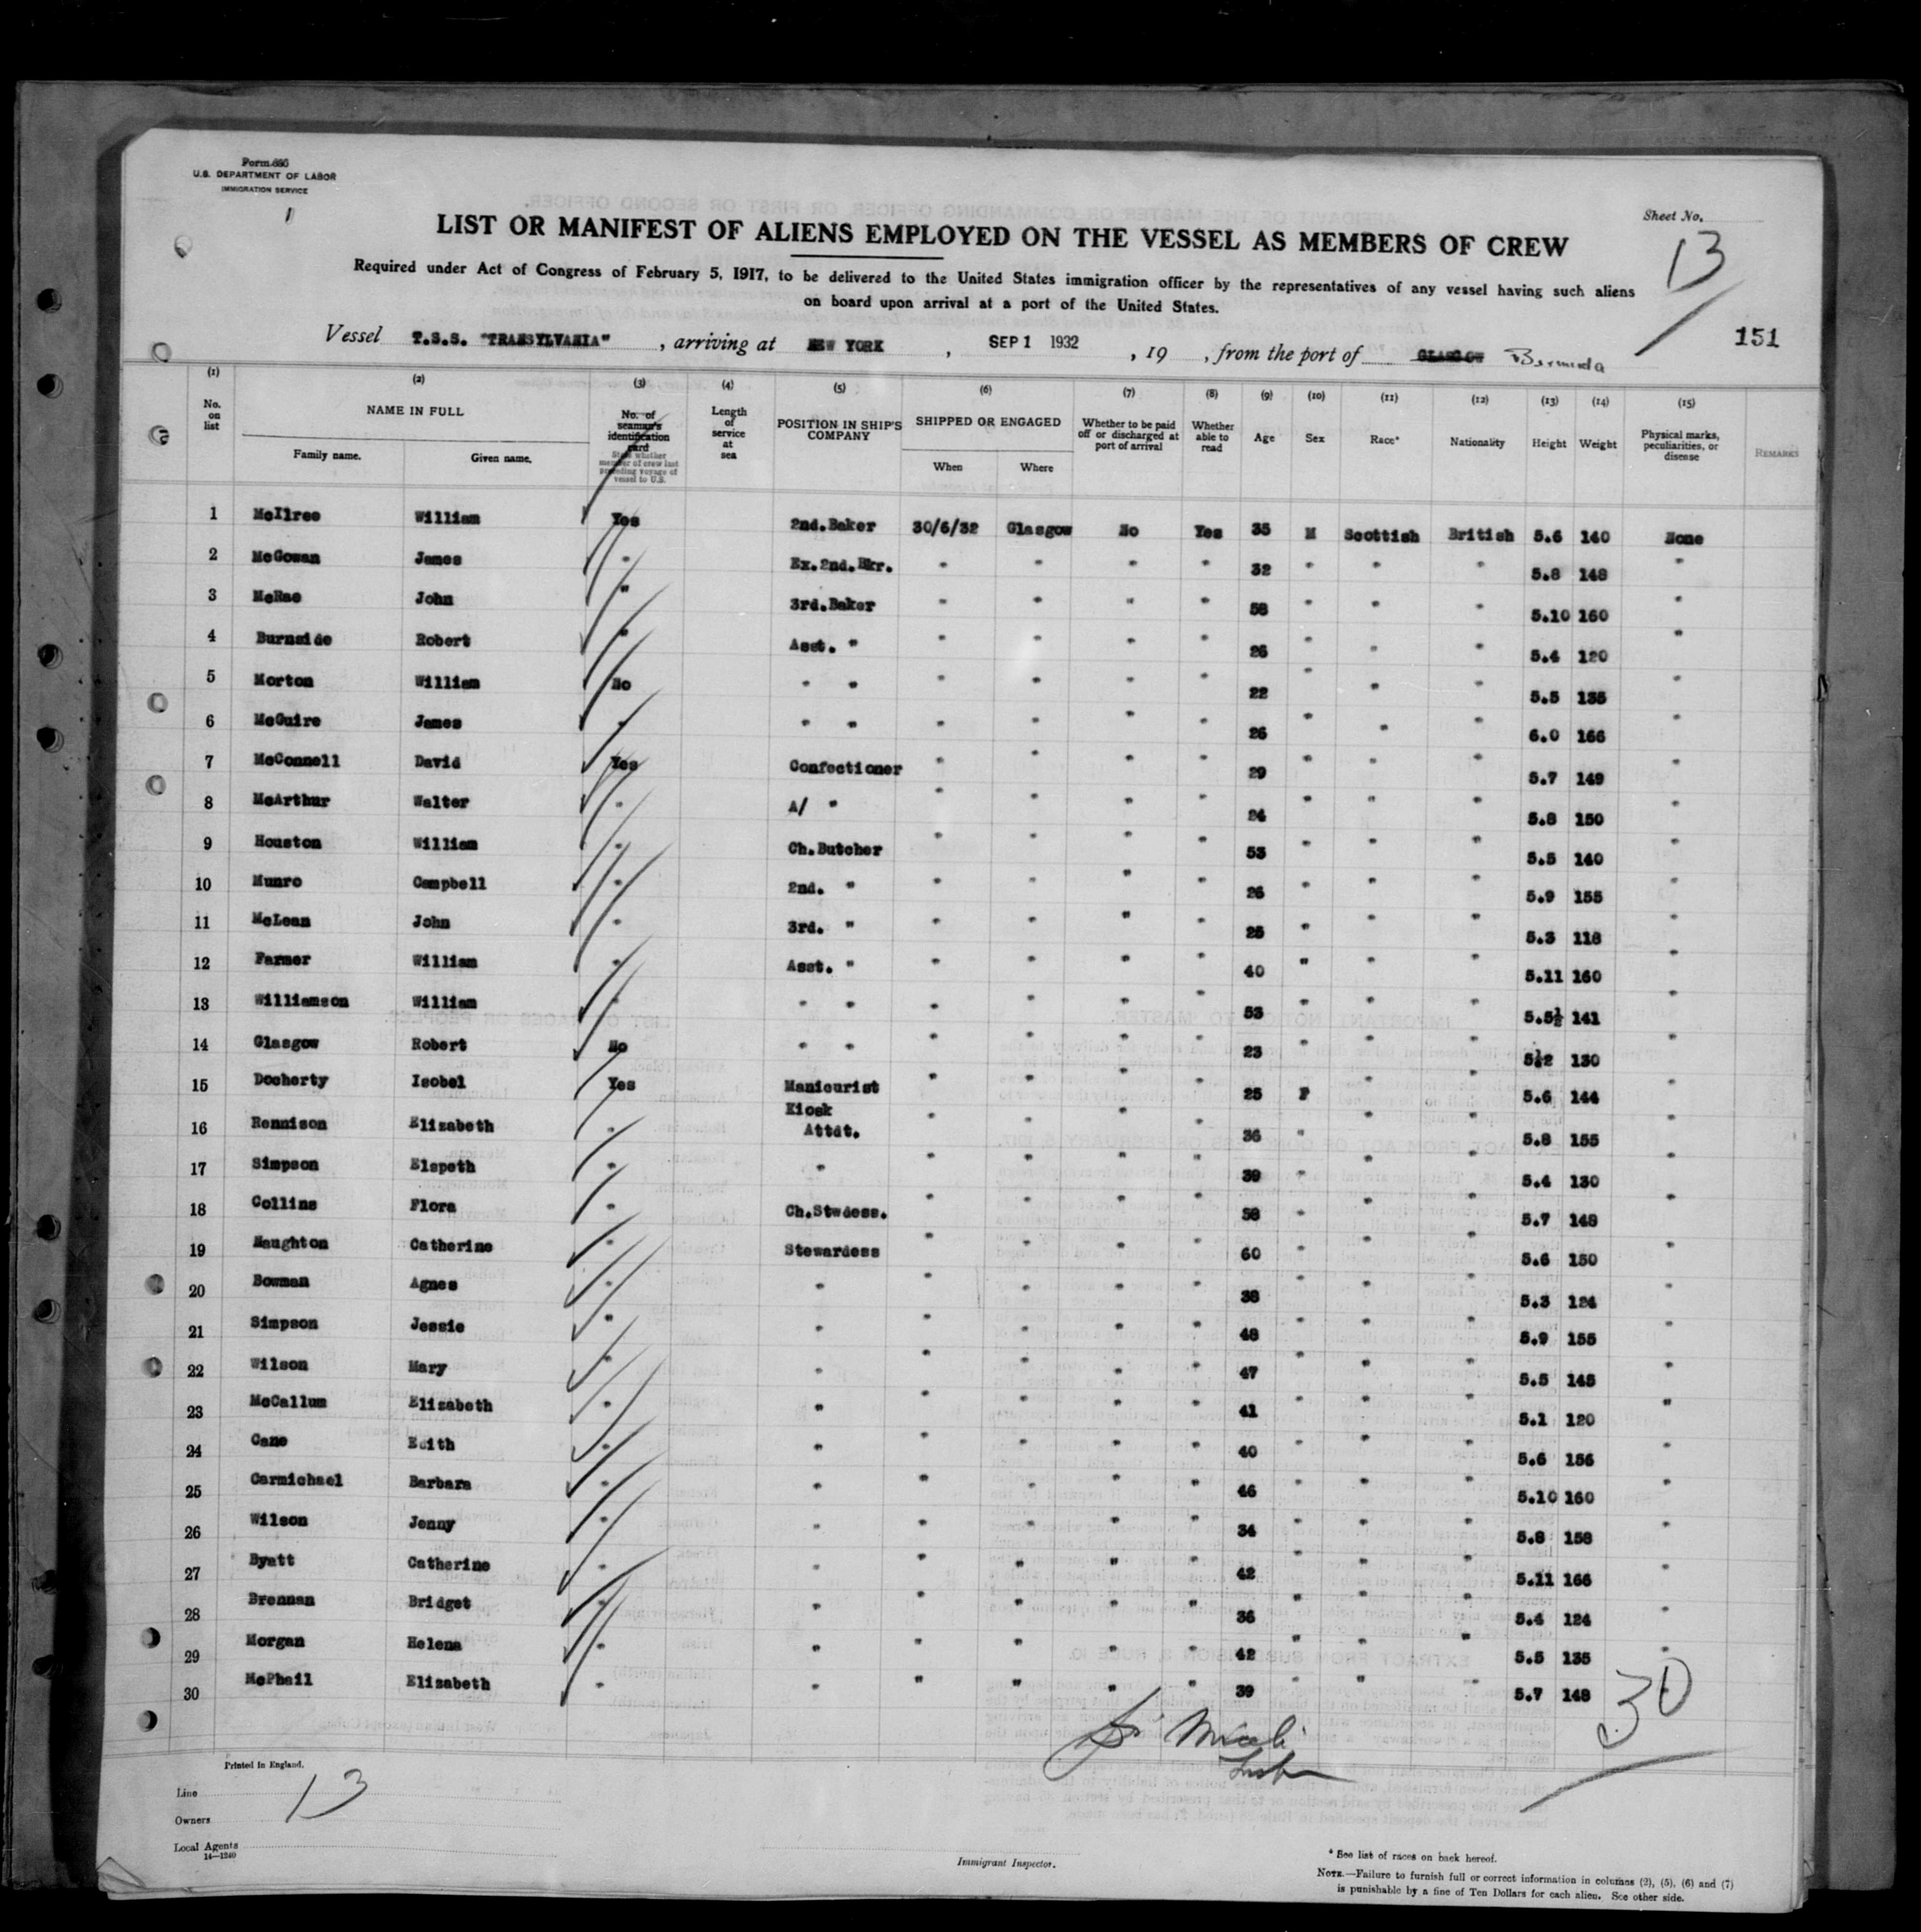 Form 686
U.S. DEPARTMENT OF LABOR
IMMIGRATION SERVICE
Sheet No. 13
LIST OR MANIFEST OF ALIENS EMPLOYED ON THE VESSEL AS MEMBERS OF CREW
Required under Act of Congress of February 5, 1917, to be delivered to the United States immigration officer by the representatives of any vessel having such aliens
on board upon arrival at a port of the United States.
151
Vessel T.S.S. "TRANSYLVANIA", arriving at NEW YORK, SEP 1 1932, 19 , from the port of GLASGOW Bermuda
(1) (2) (3) (4) (5) (6) (7) (8) (9) (10) (11) (12) (13) (14) (15)
No. on list NAME IN FULL Family name. Given name. No. of seaman's identification card State whether member of crew last preceding voyage of vessel to U.S. Length of service at sea POSITION IN SHIP'S COMPANY SHIPPED OR ENGAGED When Where Whether to be paid off or discharged at port of arrival Whether able to read Age Sex Race* Nationality Height Weight Physical marks, peculiarities, or disease REMARKS
1 McIlree William Yes 2nd.Baker 30/6/32 Glasgow No Yes 35 M Scottish British 5.6 140 None
2 McGowan James " Ex.2nd.Bkr. " " " " 32 " " " 5.8 148 "
3 McRae John " 3rd.Baker " " " " 58 " " " 5.10 160 "
4 Burnside Robert " Asst. " " " " " 26 " " " 5.4 120 "
5 Morton William No " " " " " " 22 " " " 5.5 135 "
6 McGuire James " " " " " " " 26 " " " 6.0 166 "
7 McConnell David Yes Confectioner " " " " 29 " " " 5.7 149 "
8 McArthur Walter " A/ " " " " " 24 " " " 5.8 150 "
9 Houston William " Ch.Butcher " " " " 53 " " " 5.5 140 "
10 Munro Campbell " 2nd. " " " " " 26 " " " 5.9 155 "
11 McLean John " 3rd. " " " " " 25 " " " 5.3 118 "
12 Farmer William " Asst. " " " " " 40 " " " 5.11 160 "
13 Williamson William " " " " " " " 53 " " " 5.5½ 141 "
14 Glasgow Robert No " " " " " " 23 " " " 5½2 130 "
15 Docherty Isobel Yes Manicurist " " " " 25 F " " 5.6 144 "
16 Rennison Elizabeth " Kiosk Attdt. " " " " 36 " " " 5.8 155 "
17 Simpson Elspeth " " " " " " 39 " " " 5.4 130 "
18 Collins Flora " Ch.Stwdess. " " " " 58 " " " 5.7 148 "
19 Naughton Catherine " Stewardess " " " " 60 " " " 5.6 150 "
20 Bowman Agnes " " " " " " 38 " " " 5.3 124 "
21 Simpson Jessie " " " " " " 48 " " " 5.9 155 "
22 Wilson Mary " " " " " " 47 " " " 5.5 145 "
23 McCallum Elizabeth " " " " " " 41 " " " 5.1 120 "
24 Cane Edith " " " " " " 40 " " " 5.6 156 "
25 Carmichael Barbara " " " " " " 46 " " " 5.10 160 "
26 Wilson Jenny " " " " " " 34 " " " 5.8 158 "
27 Byatt Catherine " " " " " " 42 " " " 5.11 166 "
28 Brennan Bridget " " " " " " 36 " " " 5.4 124 "
29 Morgan Helena " " " " " " 42 " " " 5.5 135 "
30 McPhail Elizabeth " " " " " " 39 " " " 5.7 148 "
30
Printed in England.
13
Line
Owners
Local Agents
14—1240
Immigrant Inspector.
* See list of races on back hereof.
NOTE.—Failure to furnish full or correct information in columns (2), (5), (6) and (7)
is punishable by a fine of Ten Dollars for each alien. See other side.